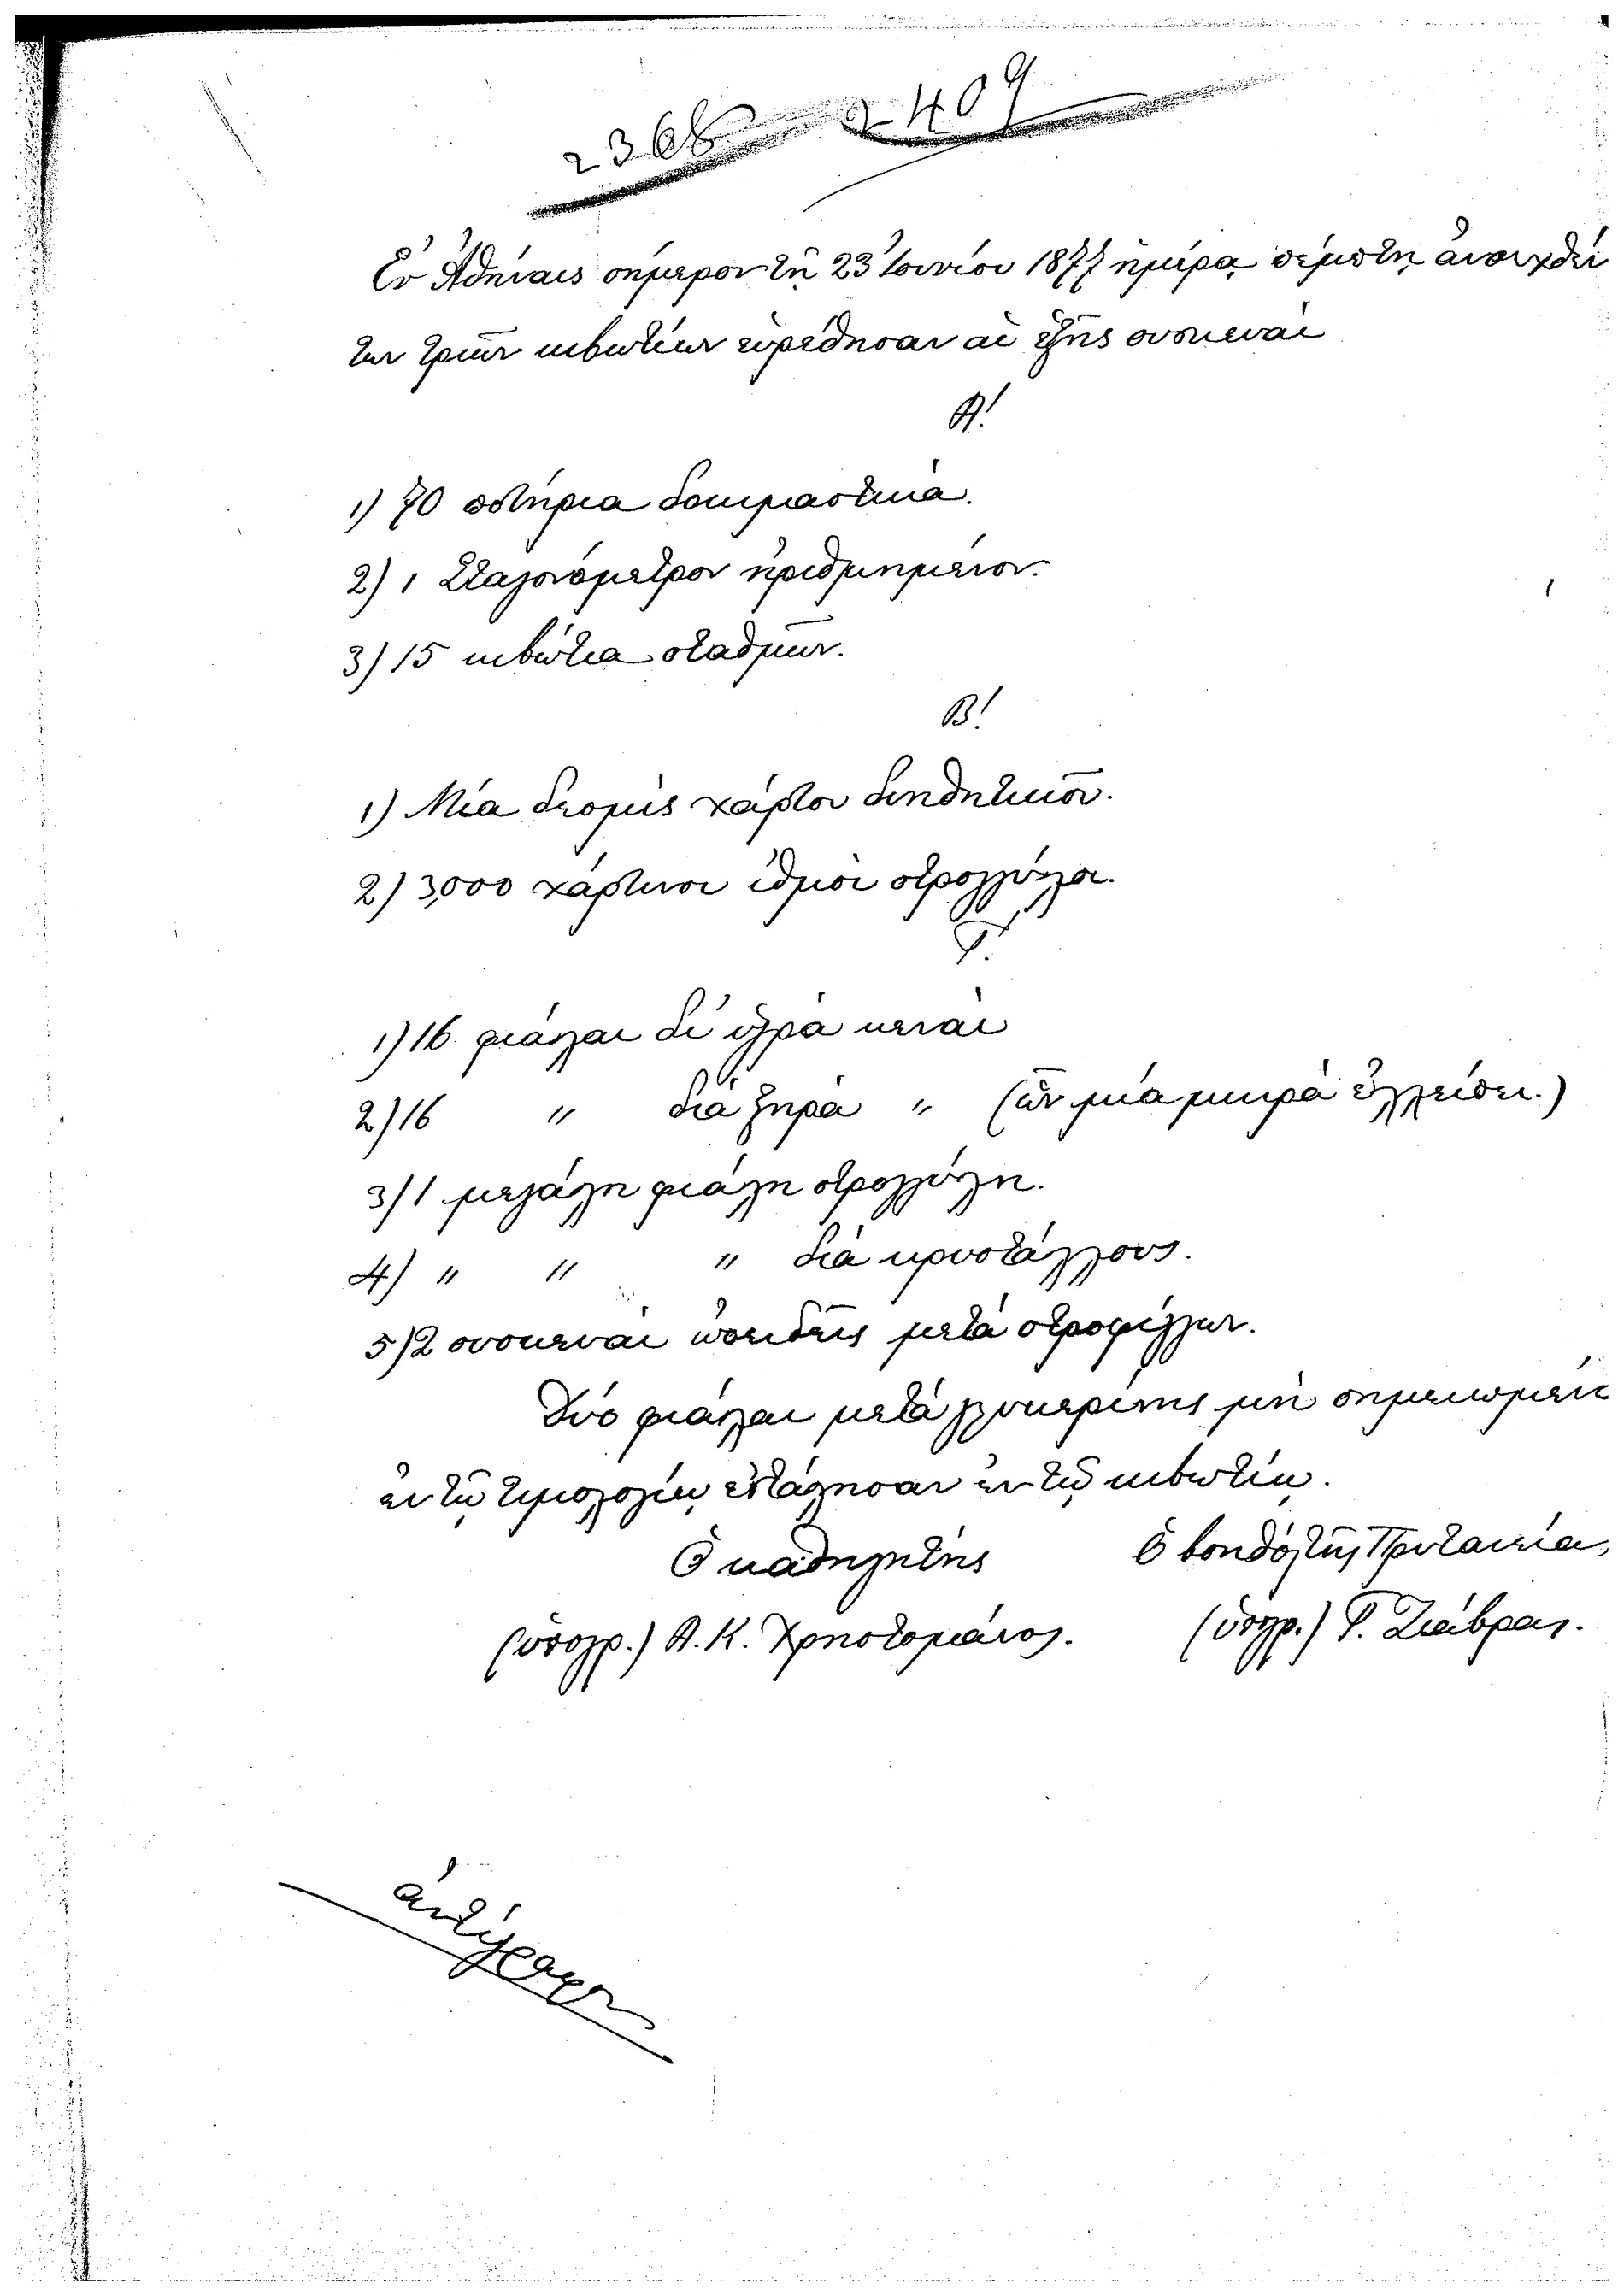 2368 2409
Ἐν Ἀθήναις σήμερον τῇ 23 Ἰουνίου 1877 ἡμέρᾳ πέμπτῃ ἀνοιχθει
των τριῶν κιβωτίων εὑρέθησαν αἱ ἑξῆς συσκευαὶ
Α!
1) 70 ποτήρια δοκιμαστικὰ.
2) 1 Σταγονόμετρον ἠριθμημένον.
3) 15 κιβώτια σταθμῶν.
Β!
1) Μία δεσμὶς χάρτου διηθητικοῦ.
2) 3,000 χάρτινοι ἠθμοὶ στρογγύλοι.
Γ!
1) 16 φιάλαι δι' ὑγρὰ κεναὶ
2) 16 " διὰ ξηρὰ " (ὧν μία μικρὰ ἐλλείπει.)
3) 1 μεγάλη φιάλη στρογγύλη.
4) " " " διὰ κρυστάλλους.
5) 2 συσκευαὶ ὠοειδεῖς μετὰ στροφίγγων.
Δύο φιάλαι μετὰ γλυκερίνης μὴ σημειωμέν
ἐν τῷ τιμολογίῳ ἐστάλησαν ἐν τῷ κιβωτίῳ.
Ὁ καθηγητής Ὁ βοηθὸς τῆς Πρυτανείας
(ὑπογρ.) Α. Κ. Χρηστομάνος. (ὑπογρ.) Γ. Ζιάβρας.
ἀντίγραφον